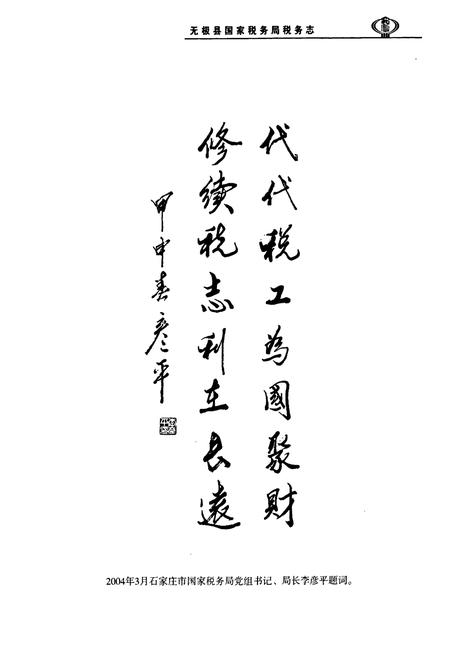 无极县国家税务局税务志
代代税工為國聚財
修續税志利在長遠
甲申春彦平
2004年3月石家庄市国家税务局党组书记、局长李彦平题词。